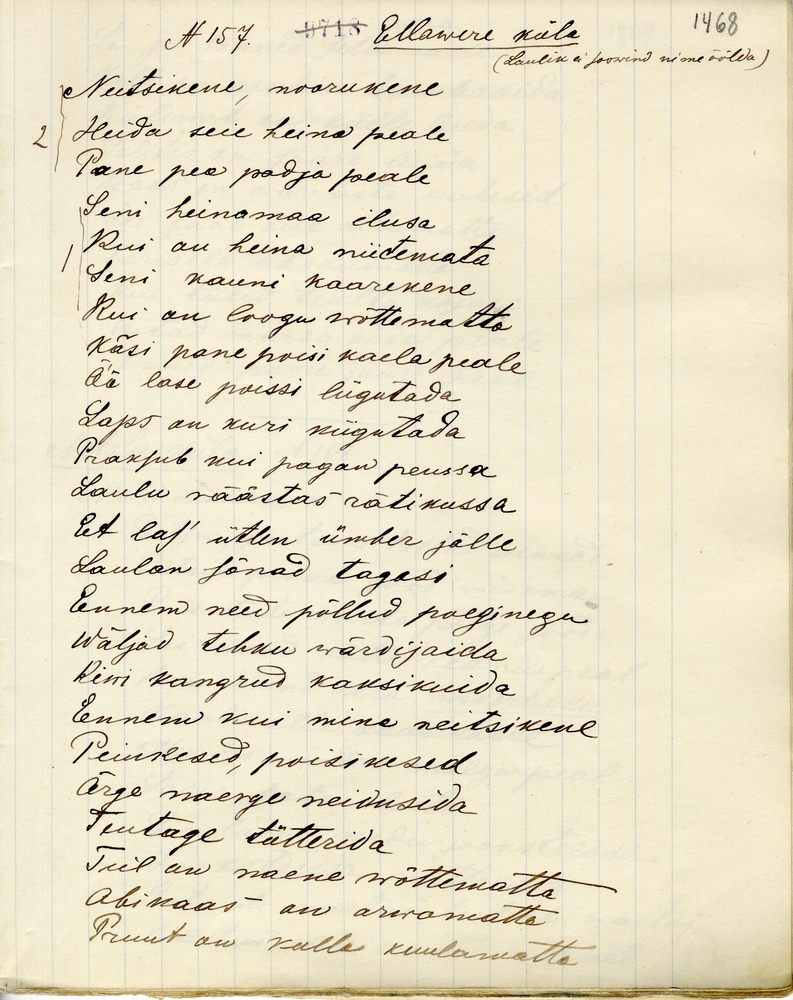 N 157. 9713 Ellawere küla 1468
(Laulik ei soowind nime öölda)
Neitsikene, noorukene
2 Heida seie heina peale
Pane pea padja peale
Seni heinamaa ilusa
1 Kui on heina niitemata
Seni kauni kaarekene
Kui on loogu wõttematta
Käsi pane poisi kaela peale
Ää lase poissi liigutada
Laps on kuri kiigutada
Praksub kui pagan peussa
Laulu räästas rätikussa
Et las' ütlen ümber jälle
Laulan sõnad tagasi
Ennem need põllud poeginegu
Wäljad tehku wärdijaida
Kiwi kangrud kaksikuida
Ennem kui mina neitsikene
Peiukesed, poisikesed
Ärge naerge neidusida
Teutage tütterida
Teil on naene wõttematta
Abikaas on arwamatta
Pruut on kalla kuulamatta